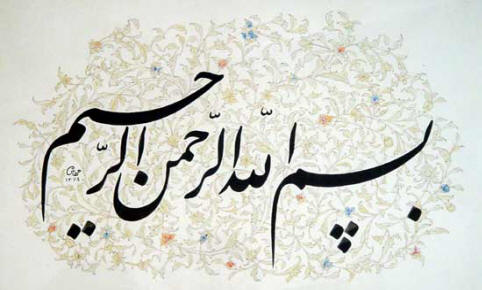 بسم الله الرحمن الرحیم
۱۳۶۹